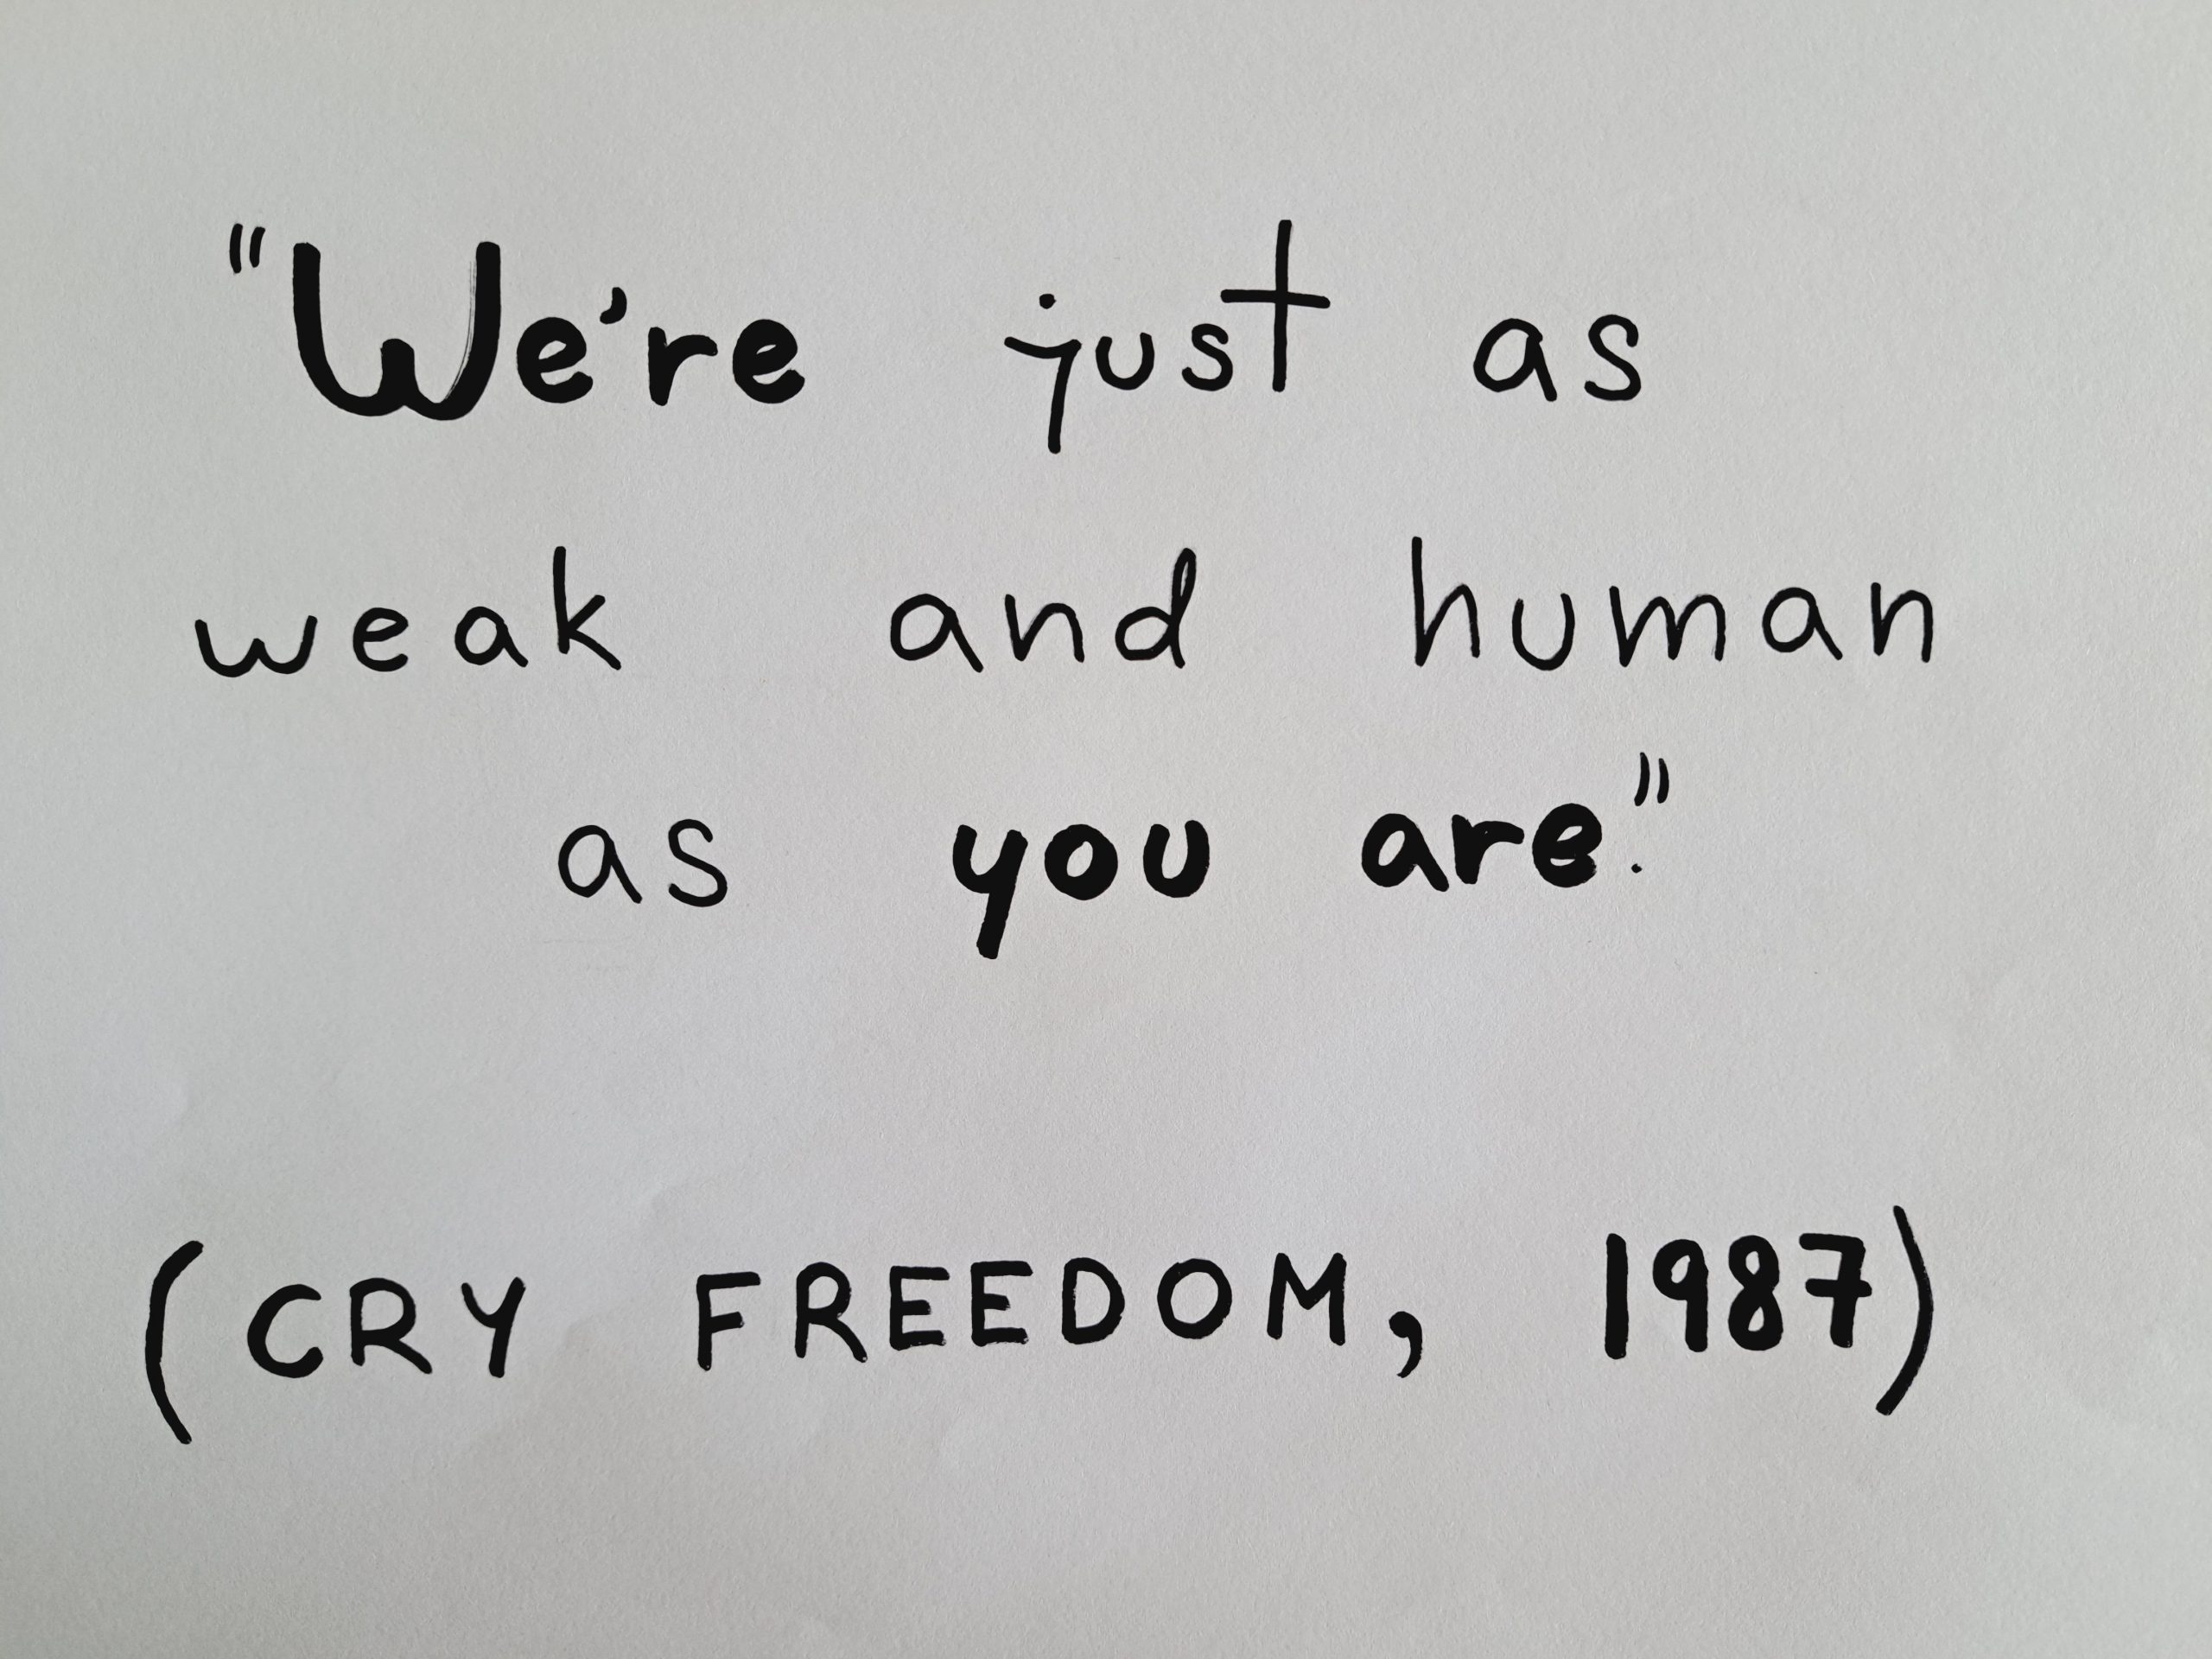 "We're just as
weak and human
as you are."
(CRY FREEDOM, 1987)